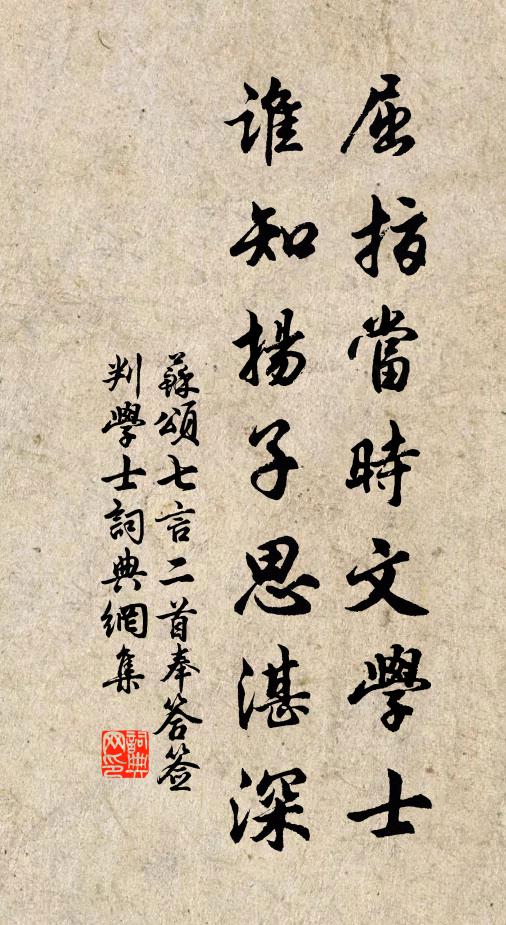 屈指當時文學士
誰知揚子思湛深
蘇頌七言二首奉答签
判學士詞典網集
詞典网印